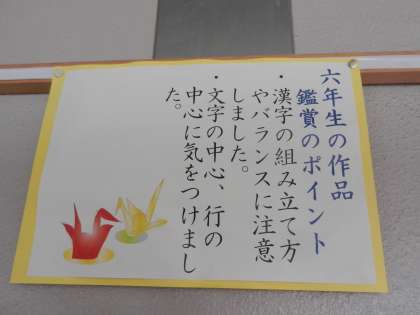 六年生の作品
鑑賞のポイント
・漢字の組み立て方
やバランスに注意
しました。
・文字の中心、行の
中心に気をつけまし
た。